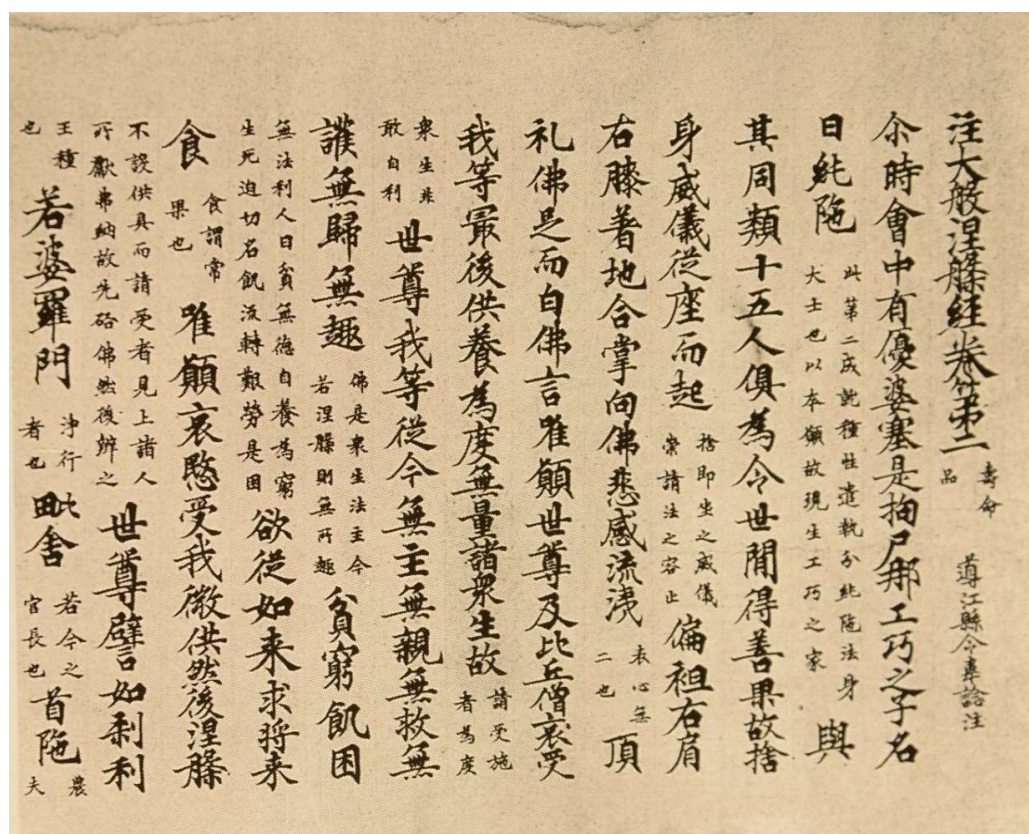 注大般涅槃經卷第二 壽命品 導江縣令韋諗注
尒時會中有優婆塞是拘尸那工巧之子名
曰純陁 此第二成就種性遣執分純陁法身大士也以本願故現生工巧之家 與
其同類十五人俱為令世間得善果故捨
身威儀從座而起 捨即坐之威儀崇請法之容止 偏袒右肩
右膝著地合掌向佛悲感流淚 表心無二也 頂
礼佛足而白佛言唯願世尊及比丘僧哀受
我等最後供養為度無量諸衆生故 請受施者為度
衆生非敢自利 世尊我等從今無主無親無救無
護無歸無趣 佛是衆生法主今若涅槃則無所趣 貧窮飢困
無法利人曰貧無德自養為窮生死迫切名飢流轉艱勞是困 欲從如来求将来
食 食謂常果也 唯願哀愍受我微供然後涅槃
不設供具而請受者見上諸人所獻弗納故先啓佛然後辦之 世尊譬如刹利
王種也 若婆羅門 淨行者也 毗舍 若今之官長也 首陁 農夫